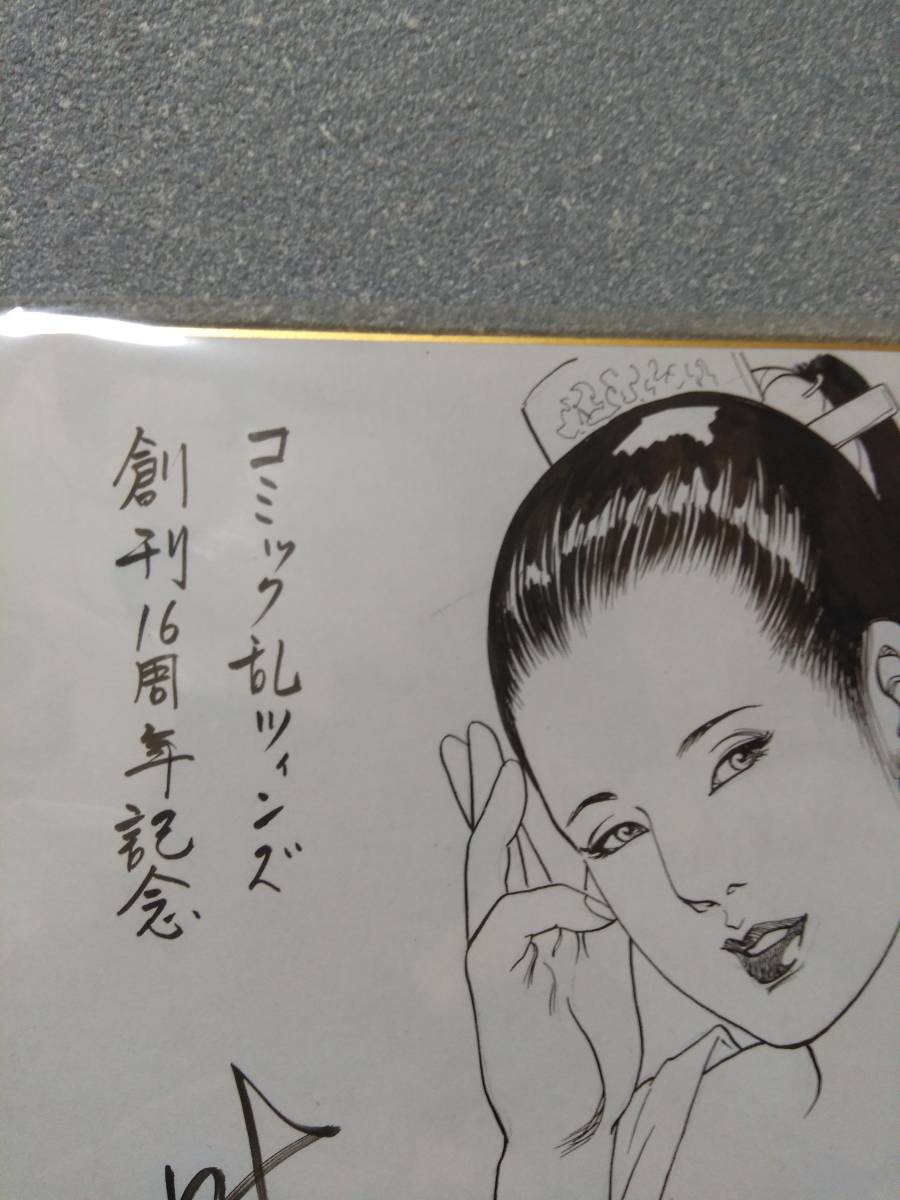 コミック乱ツインズ
創刊16周年記念